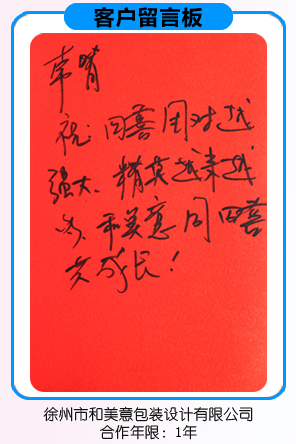 客户留言板
韦肖
祝田喜团对越
强大、精英越来越
多、和美意同田喜
共成长!
徐州市和美意包装设计有限公司
合作年限：1年